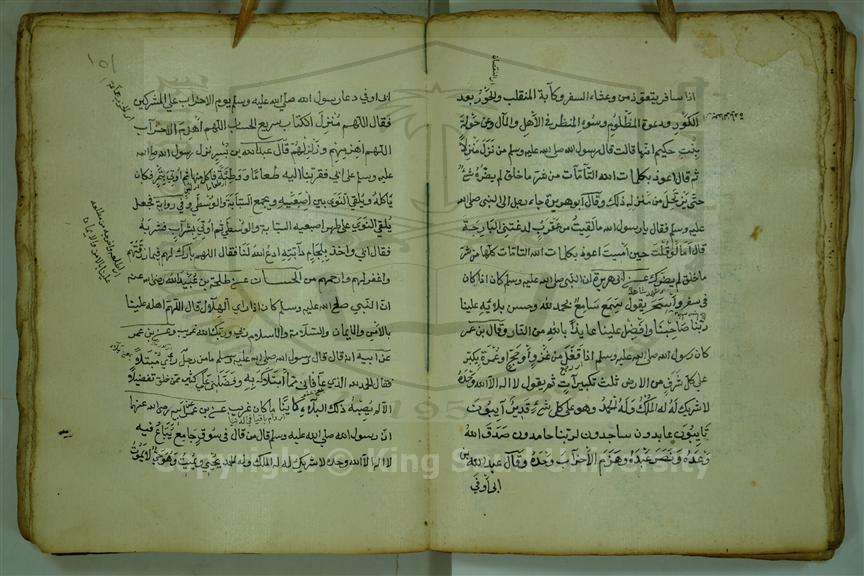 اذا سافر يتعوذ من وعثاء السفر وكآبة المنقلب والحور بعد
الكور ودعوة المظلوم وسوء المنظر في الأهل والمال وعن خولة
بنت حكيم انها قالت قال رسول الله صلى الله عليه وسلم من نزل منزلا
ثم قال اعوذ بكلمات الله التامات من شر ما خلق لم يضره شئ
حتى يرتحل من منزله ذلك وقال ابو هريرة جاء رجل الى النبي صلى الله
عليه وسلم فقال يا رسول الله ما لقيت من عقرب لدغتني البارحة
قال اما لو قلت حين امسيت اعوذ بكلمات الله التامات كلها من شر
ما خلق لم يضرك عن ابى هريرة ان النبي صلى الله عليه وسلم كان اذا كان
في سفر واسحر يقول سمع سامع بحمد الله وحسن بلائه علينا
ربنا صاحبنا وافضل علينا عائذا بالله من النار وقال بن عمر
كان رسول الله صلى الله عليه وسلم اذا قفل من غزو او حج او عمرة يكبر
على كل شرف من الارض ثلث تكبيرات ثم يقول لا اله الا الله وحده
لا شريك له له الملك وله الحمد وهو على كل شئ قدير آيبون
تايبون عابدون ساجدون لربنا حامدون صدق الله
وعده ونصر عبده وهزم الأحزاب وحده وقال عبد الله بن
ابى أوفي
١٥١
ابى اوفي دعا رسول الله صلى الله عليه وسلم يوم الاحزاب على المشركين
فقال اللهم منزل الكتاب سريع الحساب اللهم اهزم الاحزاب
اللهم اهزمهم وزلزلهم قال عبد الله بن بسر نزل رسول الله صلى الله
عليه وسلم على ابى فقربنا اليه طعاما ووطبة فاكل منها ثم اوتي بتمر فكان
ياكله ويلقي النوى بين اصبعيه ويجمع السبابة والوسطى وفي رواية فجعل
يلقى النوى على ظهر اصبعيه السبابة والوسطى ثم أوتي بشراب فشربه
فقال ابي واخذ بلجام دابته ادع الله لنا فقال اللهم بارك لهم فيما رزقتهم
واغفر لهم وارحمهم من الحسان عن طلحة بن عبيد الله رضي الله عنه
ان النبي صلى الله عليه وسلم كان اذا راى الهلال قال اللهم اهله علينا
بالامن والايمان والسلامة والاسلام ربي وربك الله غريب وعن بن عمر
عن ابيه انه قال قال رسول الله صلى الله عليه وسلم ما من رجل رأى مبتلا
فقال الحمد لله الذي عافانى مما ابتلاك به وفضلنى على كثير ممن خلق تفضيلا
الا لم يصبه ذلك البلاء كاينا ما كان غريب عن بن عمر رضى الله عنهما
ان رسول الله صلى الله عليه وسلم قال من قال في سوق جامع يباع فيه
لا اله الا الله وحده لا شريك له له الملك وله الحمد يحيي ويميت وهو حي لا يموت
Copyright © King Saud University